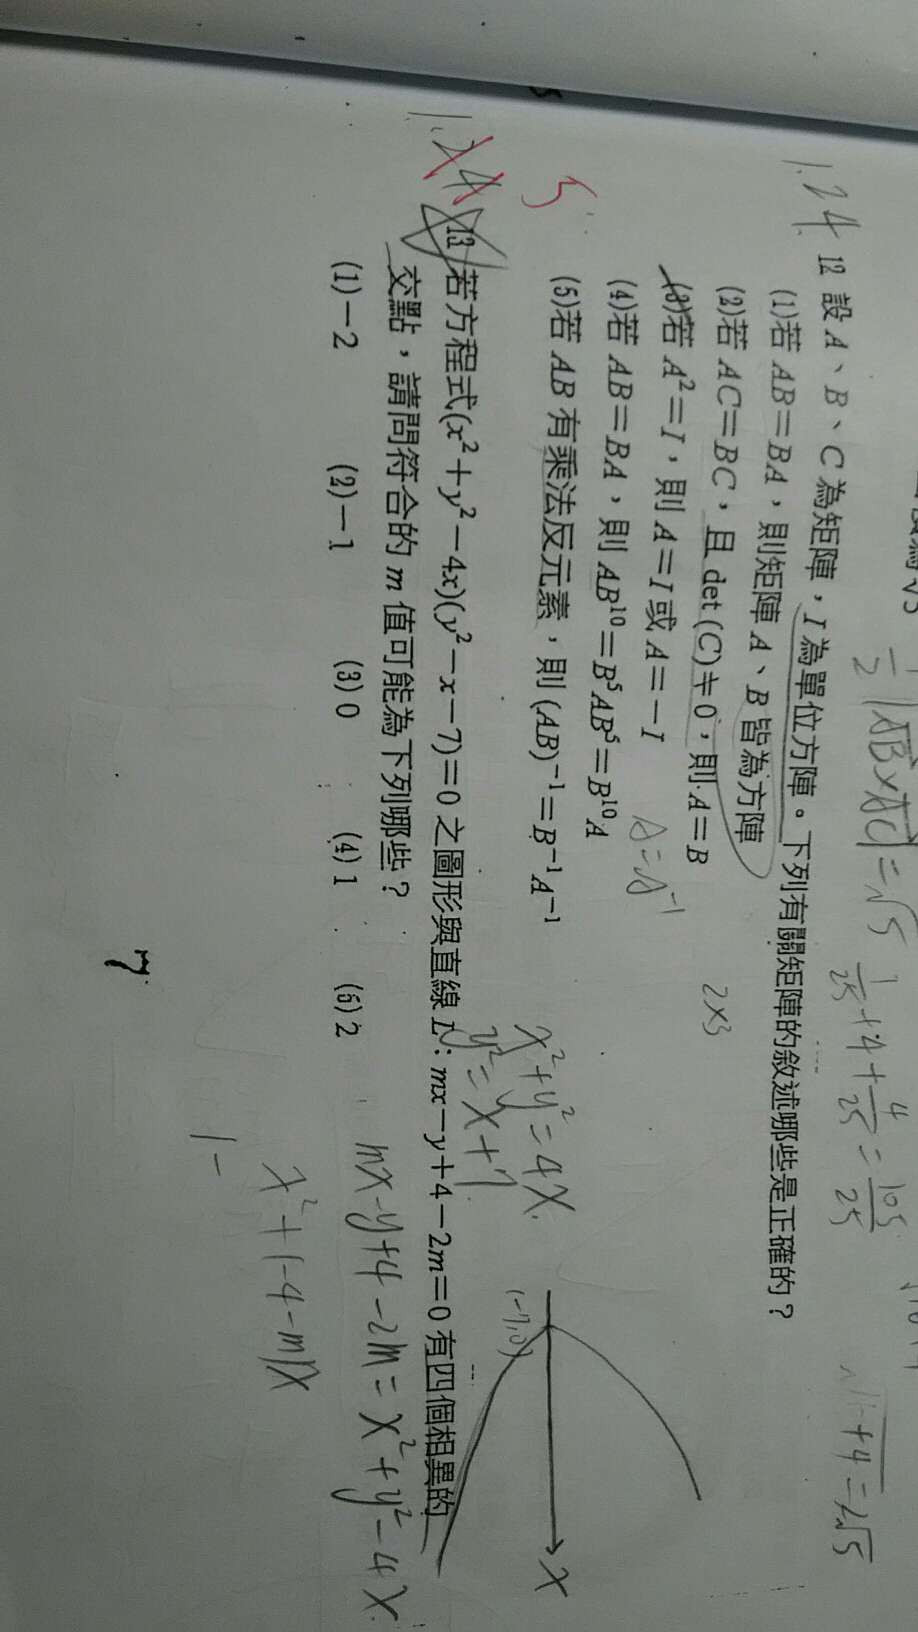 ½|AB×AC|=√5
1/25+4+4/25=105/25
+4=2√5
1.24
12 設 A、B、C 為矩陣，I 為單位方陣。下列有關矩陣的敘述哪些是正確的？
(1)若 AB＝BA，則矩陣 A、B 皆為方陣
(2)若 AC＝BC，且 det (C)≠0，則 A＝B
2×3
(3)若 A²＝I，則 A＝I 或 A＝－I
A=A⁻¹
(4)若 AB＝BA，則 AB¹⁰＝B⁵AB⁵＝B¹⁰A
(5)若 AB 有乘法反元素，則 (AB)⁻¹＝B⁻¹A⁻¹
5
x²+y²=4x
y²=x+7
(-7,0)
x
1.24
13 若方程式(x²＋y²－4x)(y²－x－7)＝0 之圖形與直線 L：mx－y＋4－2m＝0 有四個相異的
交點，請問符合的 m 值可能為下列哪些？
(1)－2 (2)－1 (3) 0 (4) 1 (5) 2
mx-y+4-2m=x²+y²-4x
x²+(-4-m)x
7